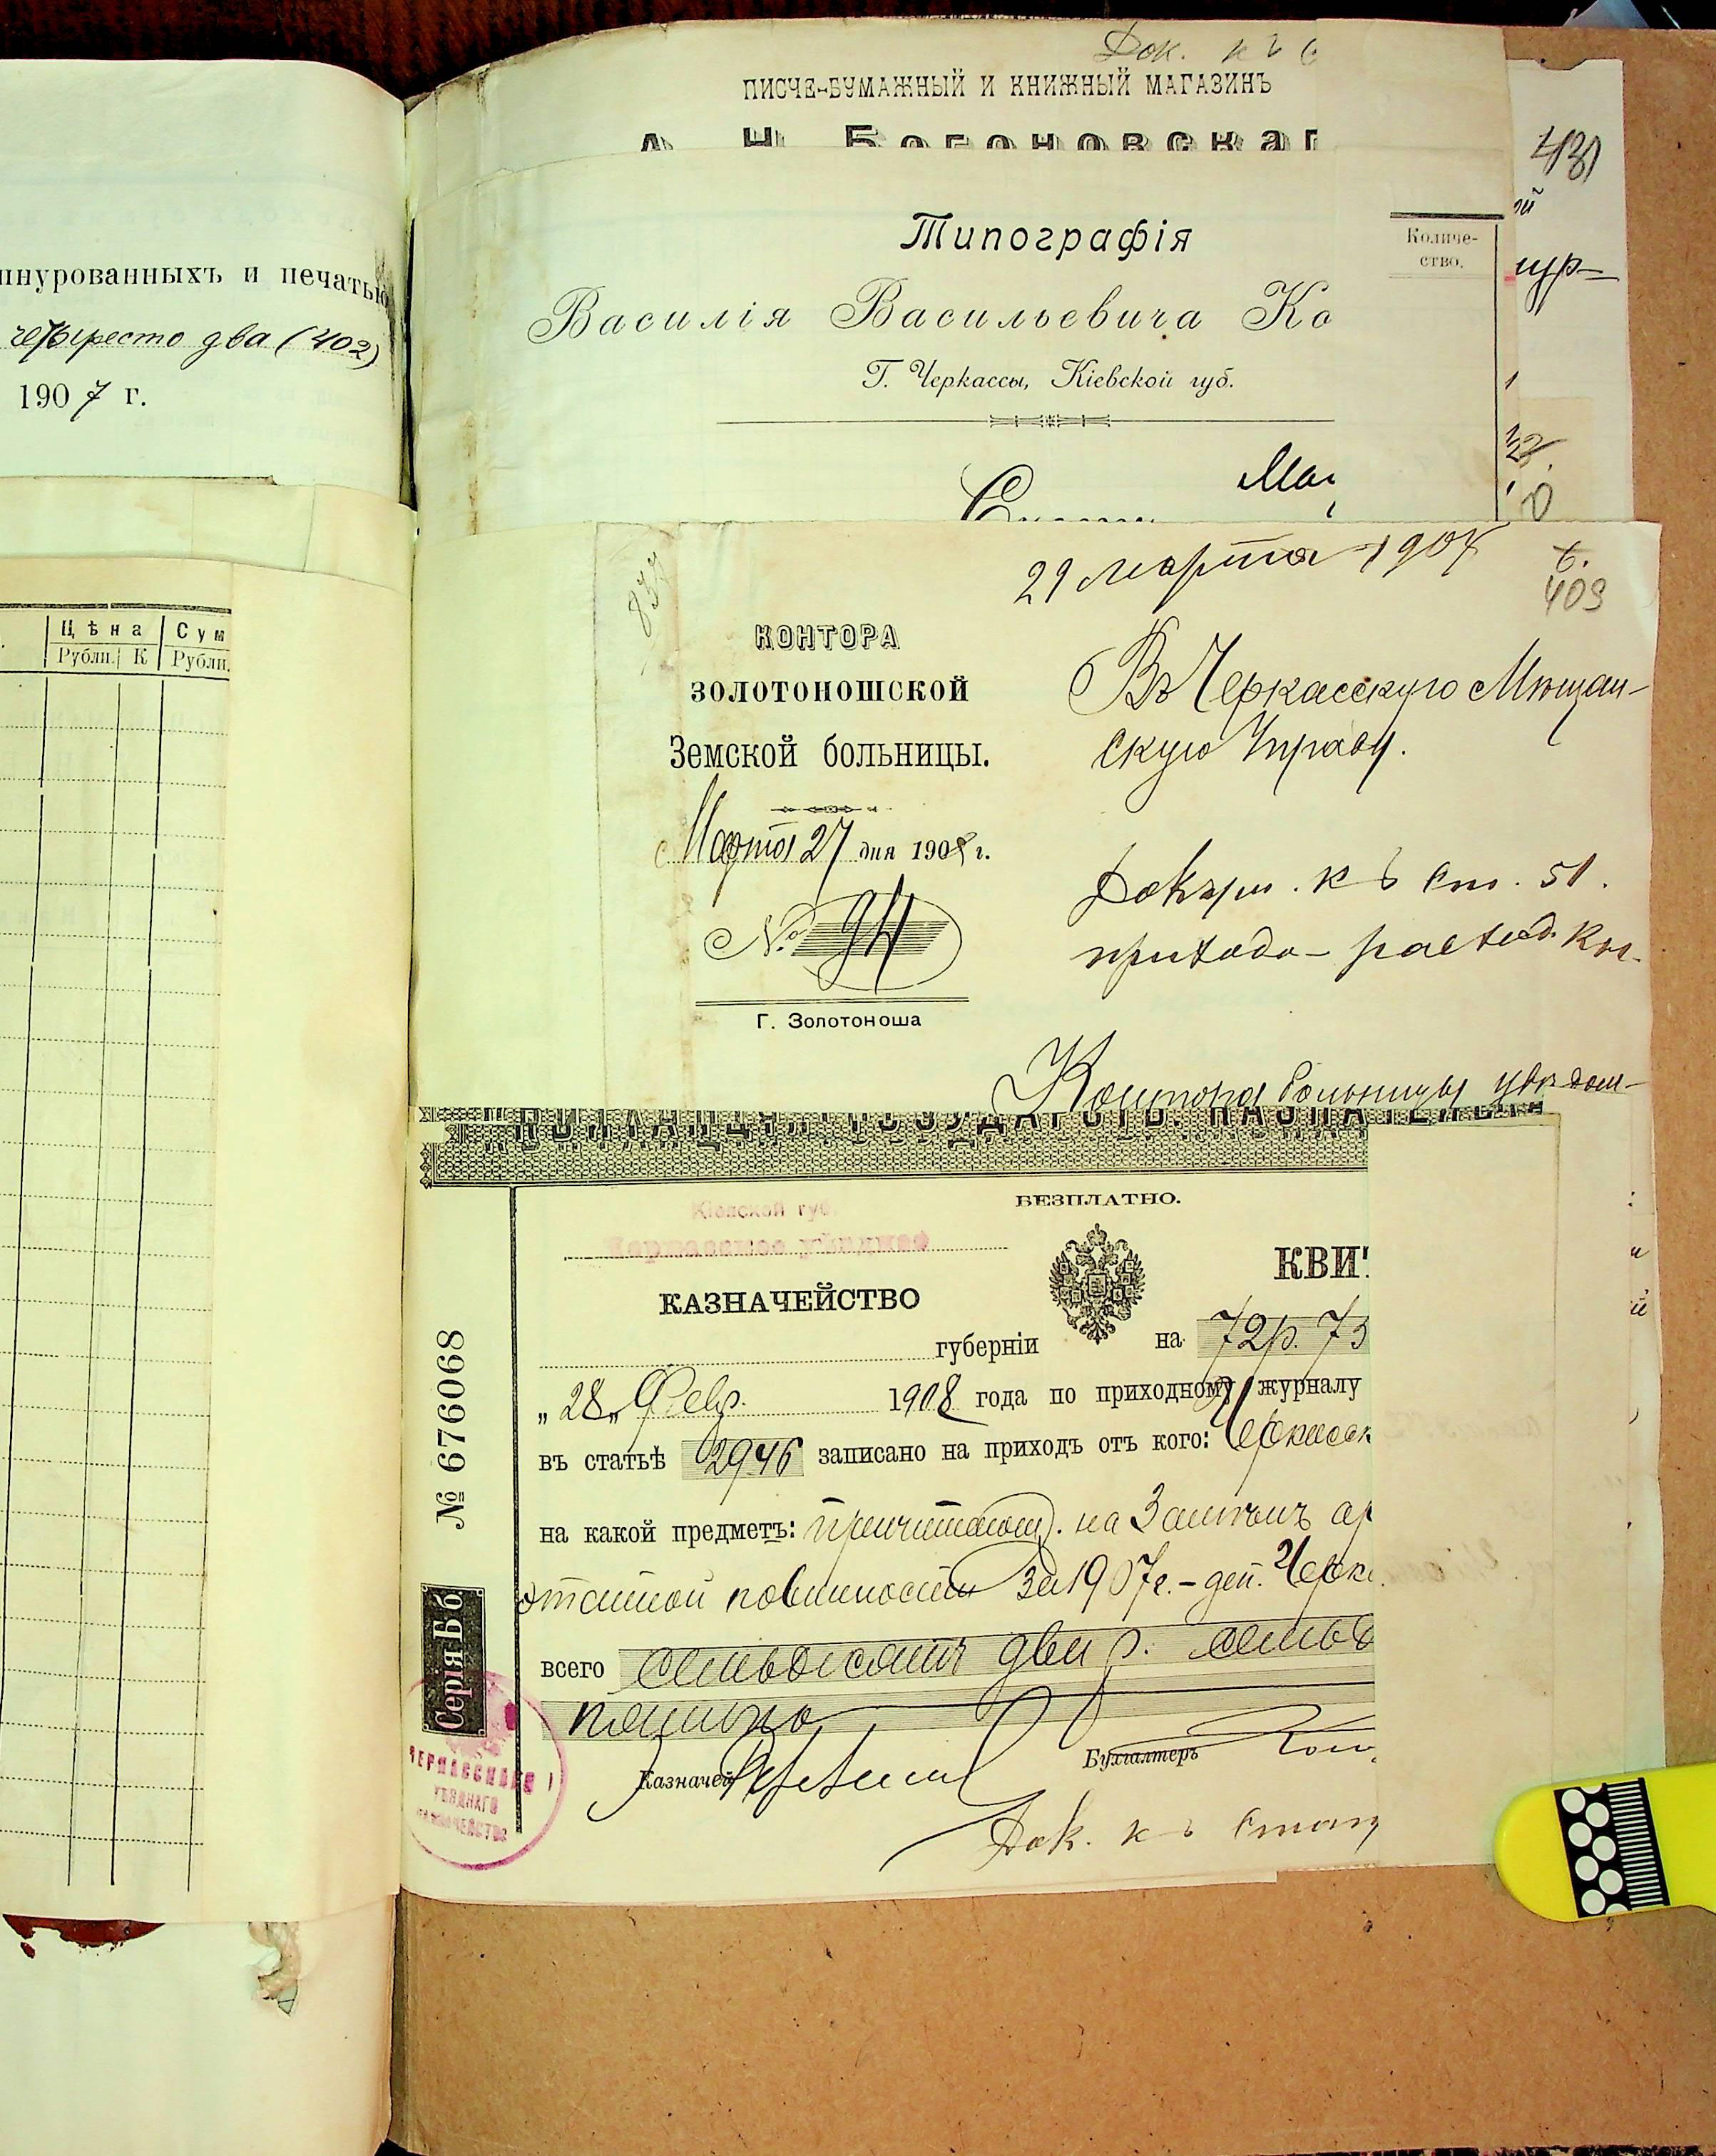 шнурованныхъ и печатью
четыреста два (402)
1907 г.
Цѣна Сум
Рубли. К Рубли.
Док. къ с
ПИСЧЕ-БУМАЖНЫЙ И КНИЖНЫЙ МАГАЗИНЪ
А. Н. Богоновскаг
Типографія
Василія Васильевича Ко
Г. Черкассы, Кіевской губ.
Количе-
ство.
431
29 марта 1908
409
КОНТОРА
ЗОЛОТОНОШСКОЙ
Земской больницы.
Марта 27 дня 1908 г.
№ 94
Г. Золотоноша
Въ Черкасскую Мѣщан-
скую Управу.
Докум. къ ст. 51.
приходо-расход. кн.
Контора больницы увѣдом-
БЕЗПЛАТНО.
Кіевской губ.
Черкасское уѣздное
КАЗНАЧЕЙСТВО
КВИТ
губерніи на 72 р. 73
„28„ Февр. 1908 года по приходному журналу
въ статьѣ 2946 записано на приходъ отъ кого: Черкасск
на какой предметъ: причитающ. на
повинности за 1907 г. – деп. Черк
всего семьдесятъ два р. семьд
Казначей
Бухгалтеръ
Док. къ стат
№ 6760​68
Серія Бб
ЧЕРКАССКАГО
УѢЗДНАГО
КАЗНАЧЕЙСТВА